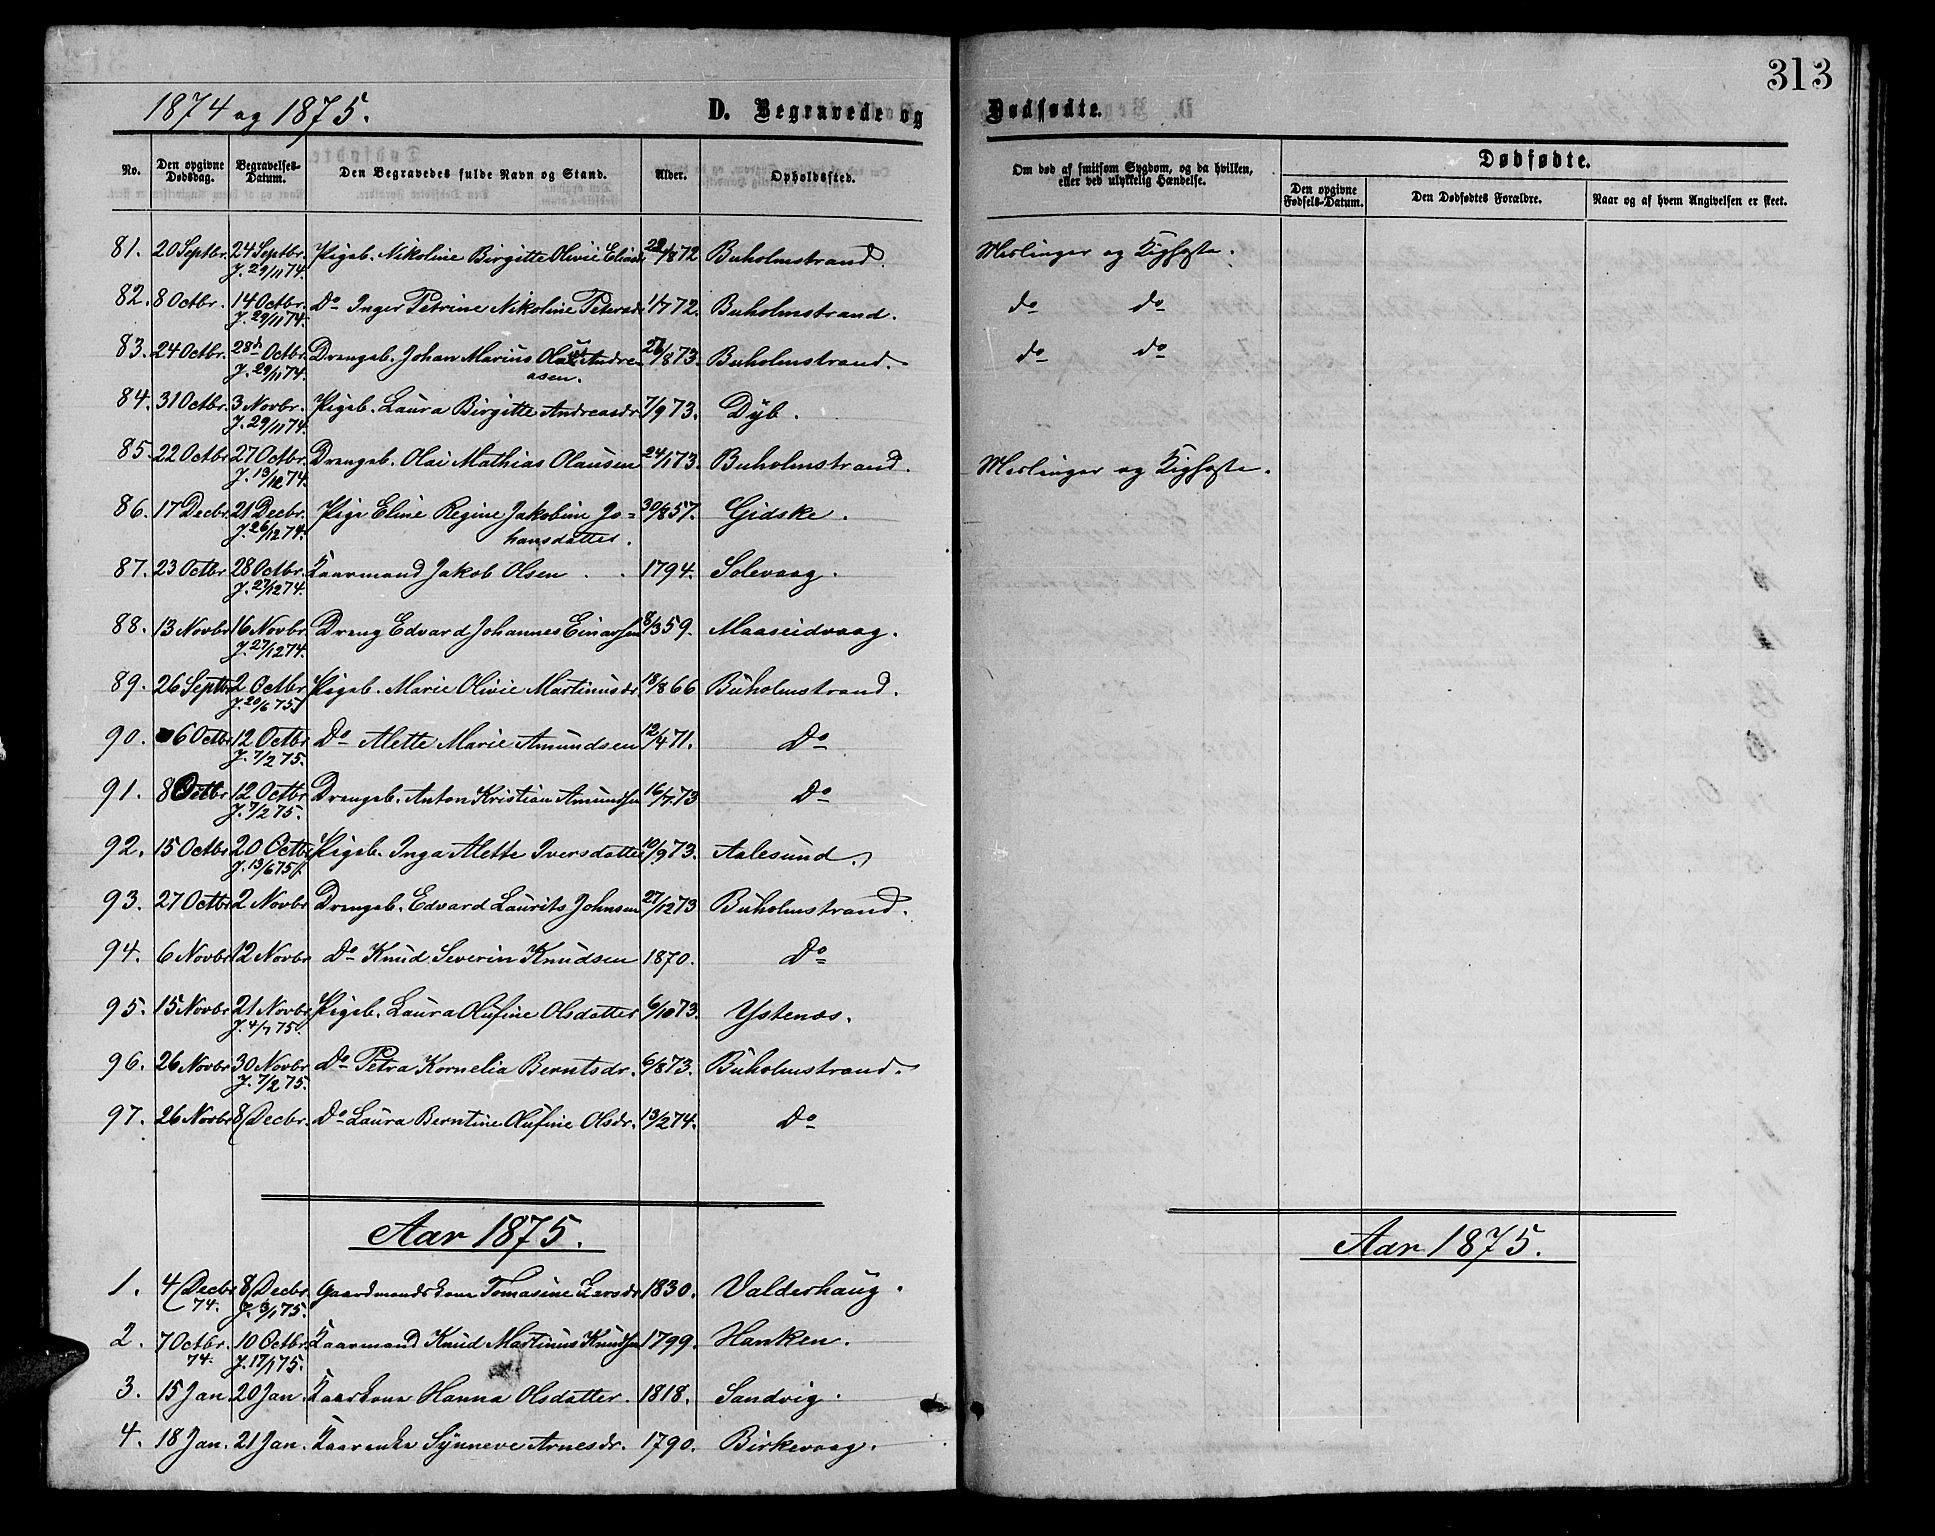 313
1874 og 1875.
D. Begravede og Dødfødte.
No. Den opgivne Dødsdag. Begravelses-Datum. Den Begravedes fulde Navn og Stand. Alder. Opholdssted. Om død af smitsom Sygdom, og da hvilken, eller ved ulykkelig Hændelse. Dødfødte.
Den opgivne Fødsels-Datum. Den Dødfødtes Forældre. Naar og af hvem Angivelsen er skeet.
81. 20 Septbr. 24 Septbr. Pigeb. Nikoline Birgitte Olivie 1872 Buholmstrand. Meslinger og Kighoste.
J. 29/11 74.
82. 8 Octbr. 14 Octbr. Do Inger Petrine Nikoline Petersdr 1/7 72. Buholmstrand. do do
J. 29/11 74.
83. 24 Octbr. 28 Octbr. Drengeb. Johan Marius Andre- 8 73. Buholmstrand. do do
J. 29/11 74. asen.
84. 31 Octbr. 3 Novbr. Pigeb. Laura Birgitte Andreasdr 7/9 73. Dyb.
J. 29/11 74.
85. 22 Octbr. 27 Octbr. Drengeb. Olai Mathias Olausen 24/1 73. Buholmstrand. Meslinger og Kighoste.
J. 13/12 74.
86. 17 Decbr. 21 Decbr. Pige Eline Regine Jakobine Jo= 30/8 57. Gidske.
J. 26/12 74. hansdatter.
87. 23 Octbr 28 Octbr. Kaarmand Jakob Olsen 1794. Solevaag.
J. 27/12 74.
88. 13 Novbr 16 Novbr. Dreng Edvard Johannes Einarsen 8/3 59. Maaseidvaag.
J. 27/12 74.
89. 26 Septbr 2 Octbr Pigeb. Marie Olivie Martinusdr. 18/8 66 Buholmstrand.
J. 20/6 75.
90. 6 Octbr 12 Octbr Do Alette Marie Amundsen 12/4 71. Do
J. 7/2 75.
91. 8 Octbr 12 Octbr Drengeb. Anton Kristian Amundsen 16/7 73 Do
J. 7/2 75.
92. 15 Octbr 20 Octbr Pigeb. Inga Alette Iversdatter 10/9 73. Aalesund.
J. 13/6 75.
93. 27 Octbr 2 Novbr Drengeb. Edvard Laurits Johnsen 27/12 73 Buholmstrand.
94. 6 Novbr 12 Novbr Do Knud Severin Knudsen 1870. Do
95. 15 Novbr 21 Novbr Pigeb. Laura Olufine Olsdatter 6/10 73. Ystenæs.
J. 4/7 75.
96. 26 Novbr 30 Novbr Do Petra Kornelia Berntsdr. 6/8 73. Buholmstrand.
J. 7/2 75.
97. 26 Novbr 8/Decbr. Do Laura Berntine Olufine Olsdr. 13/2 74. Do
Aar 1875. Aar 1875.
1. 4/Decbr 8/Decbr. Gaardmandskone Tomasine 1830. Valderhaug.
74. J. 3/1 75.
2. 7 Octbr. 10 Octbr. Kaarmand Knud Martinus Knudsen 1799. Hanken.
74. J. 17/1 75.
3. 15 Jan. 20 Jan. Kaarkone Hanna Olsdatter. 1818. Sandvig.
4. 18 Jan. 21 Jan. Kaarenke Synneve Arnesdr. 1790. Birkevaag.